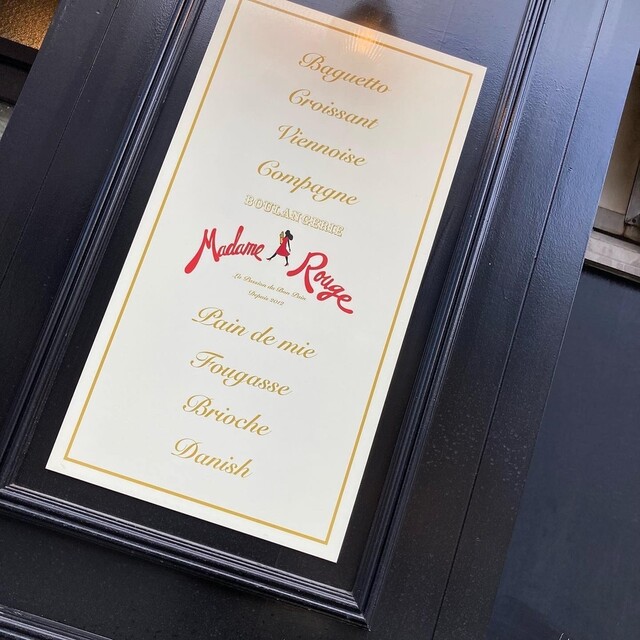 Baguetto
Croissant
Viennoise
Compagne
BOULANGERIE
Madame Rouge
La Passion du Bon Pain
Depuis 2012
Pain de mie
Fougasse
Brioche
Danish